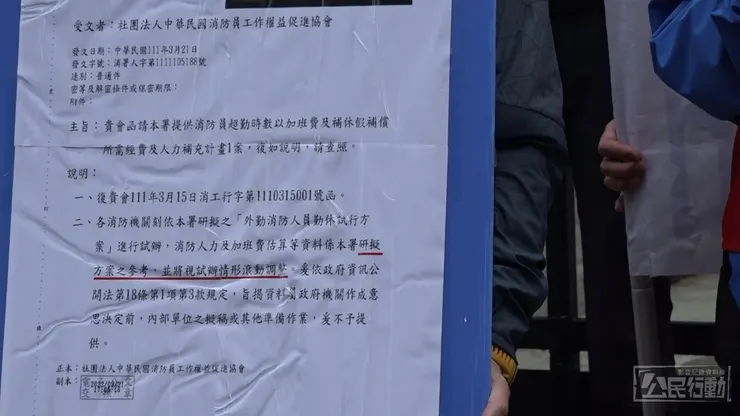 受文者：社團法人中華民國消防員工作權益促進協會
發文日期：中華民國111年3月21日
發文字號：消署人字第1111105188號
速別：普通件
密等及解密條件或保密期限：
附件：
主旨：貴會函請本署提供消防員超勤時數以加班費及補休假補償
所需經費及人力補充計畫1案，復如說明，請查照。
說明：
一、復貴會111年3月15日消工行字第1110315001號函。
二、各消防機關刻依本署研擬之「外勤消防人員勤休試行方
案」進行試辦，消防人力及加班費估算等資料係本署研擬
方案之參考，並將視試辦情形滾動調整。爰依政府資訊公
開法第18條第1項第3款規定，旨揭資料屬政府機關作成意
思決定前，內部單位之擬稿或其他準備作業，爰不予提
供。
正本：社團法人中華民國消防員工作權益促進協會
副本：
2022/03/21
影音紀錄資料庫
公民行動